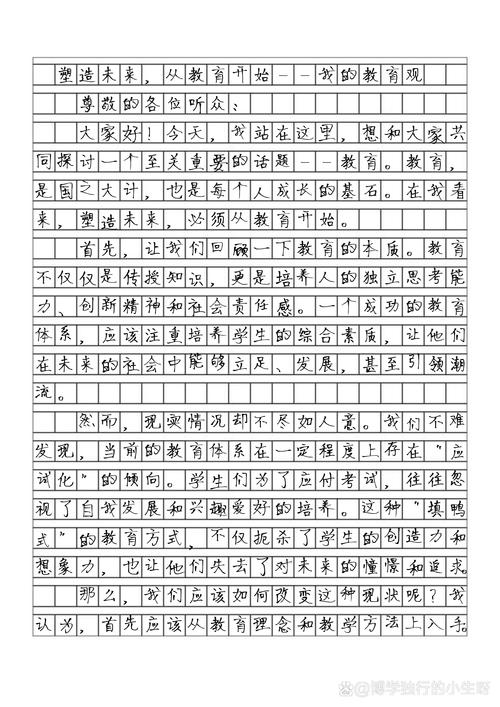 塑造未来，从教育开始--我的教育观
尊敬的各位听众：
大家好！今天，我站在这里，想和大家共
同探讨一个至关重要的话题--教育。教育，
是国之大计，也是每个人成长的基石。在我看
来，塑造未来，必须从教育开始。
首先，让我们回顾一下教育的本质。教育
不仅仅是传授知识，更是培养人的独立思考能
力、创新精神和社会责任感。一个成功的教育
体系，应该注重培养学生的综合素质，让他们
在未来的社会中能够立足、发展，甚至引领潮
流。
然而，现实情况却不尽如人意。我们不难
发现，当前的教育体系在一定程度上存在"应
试化"的倾向。学生们为了应付考试，往往忽
视了自我发展和兴趣爱好的培养。这种"填鸭
式"的教育方式，不仅扼杀了学生的创造力和
想象力，也让他们失去了对未来的憧憬和追求。
那么，我们应该如何改变这种现状呢？我
认为，首先应该从教育理念和教学方法上入手。
博学独行的小生呀